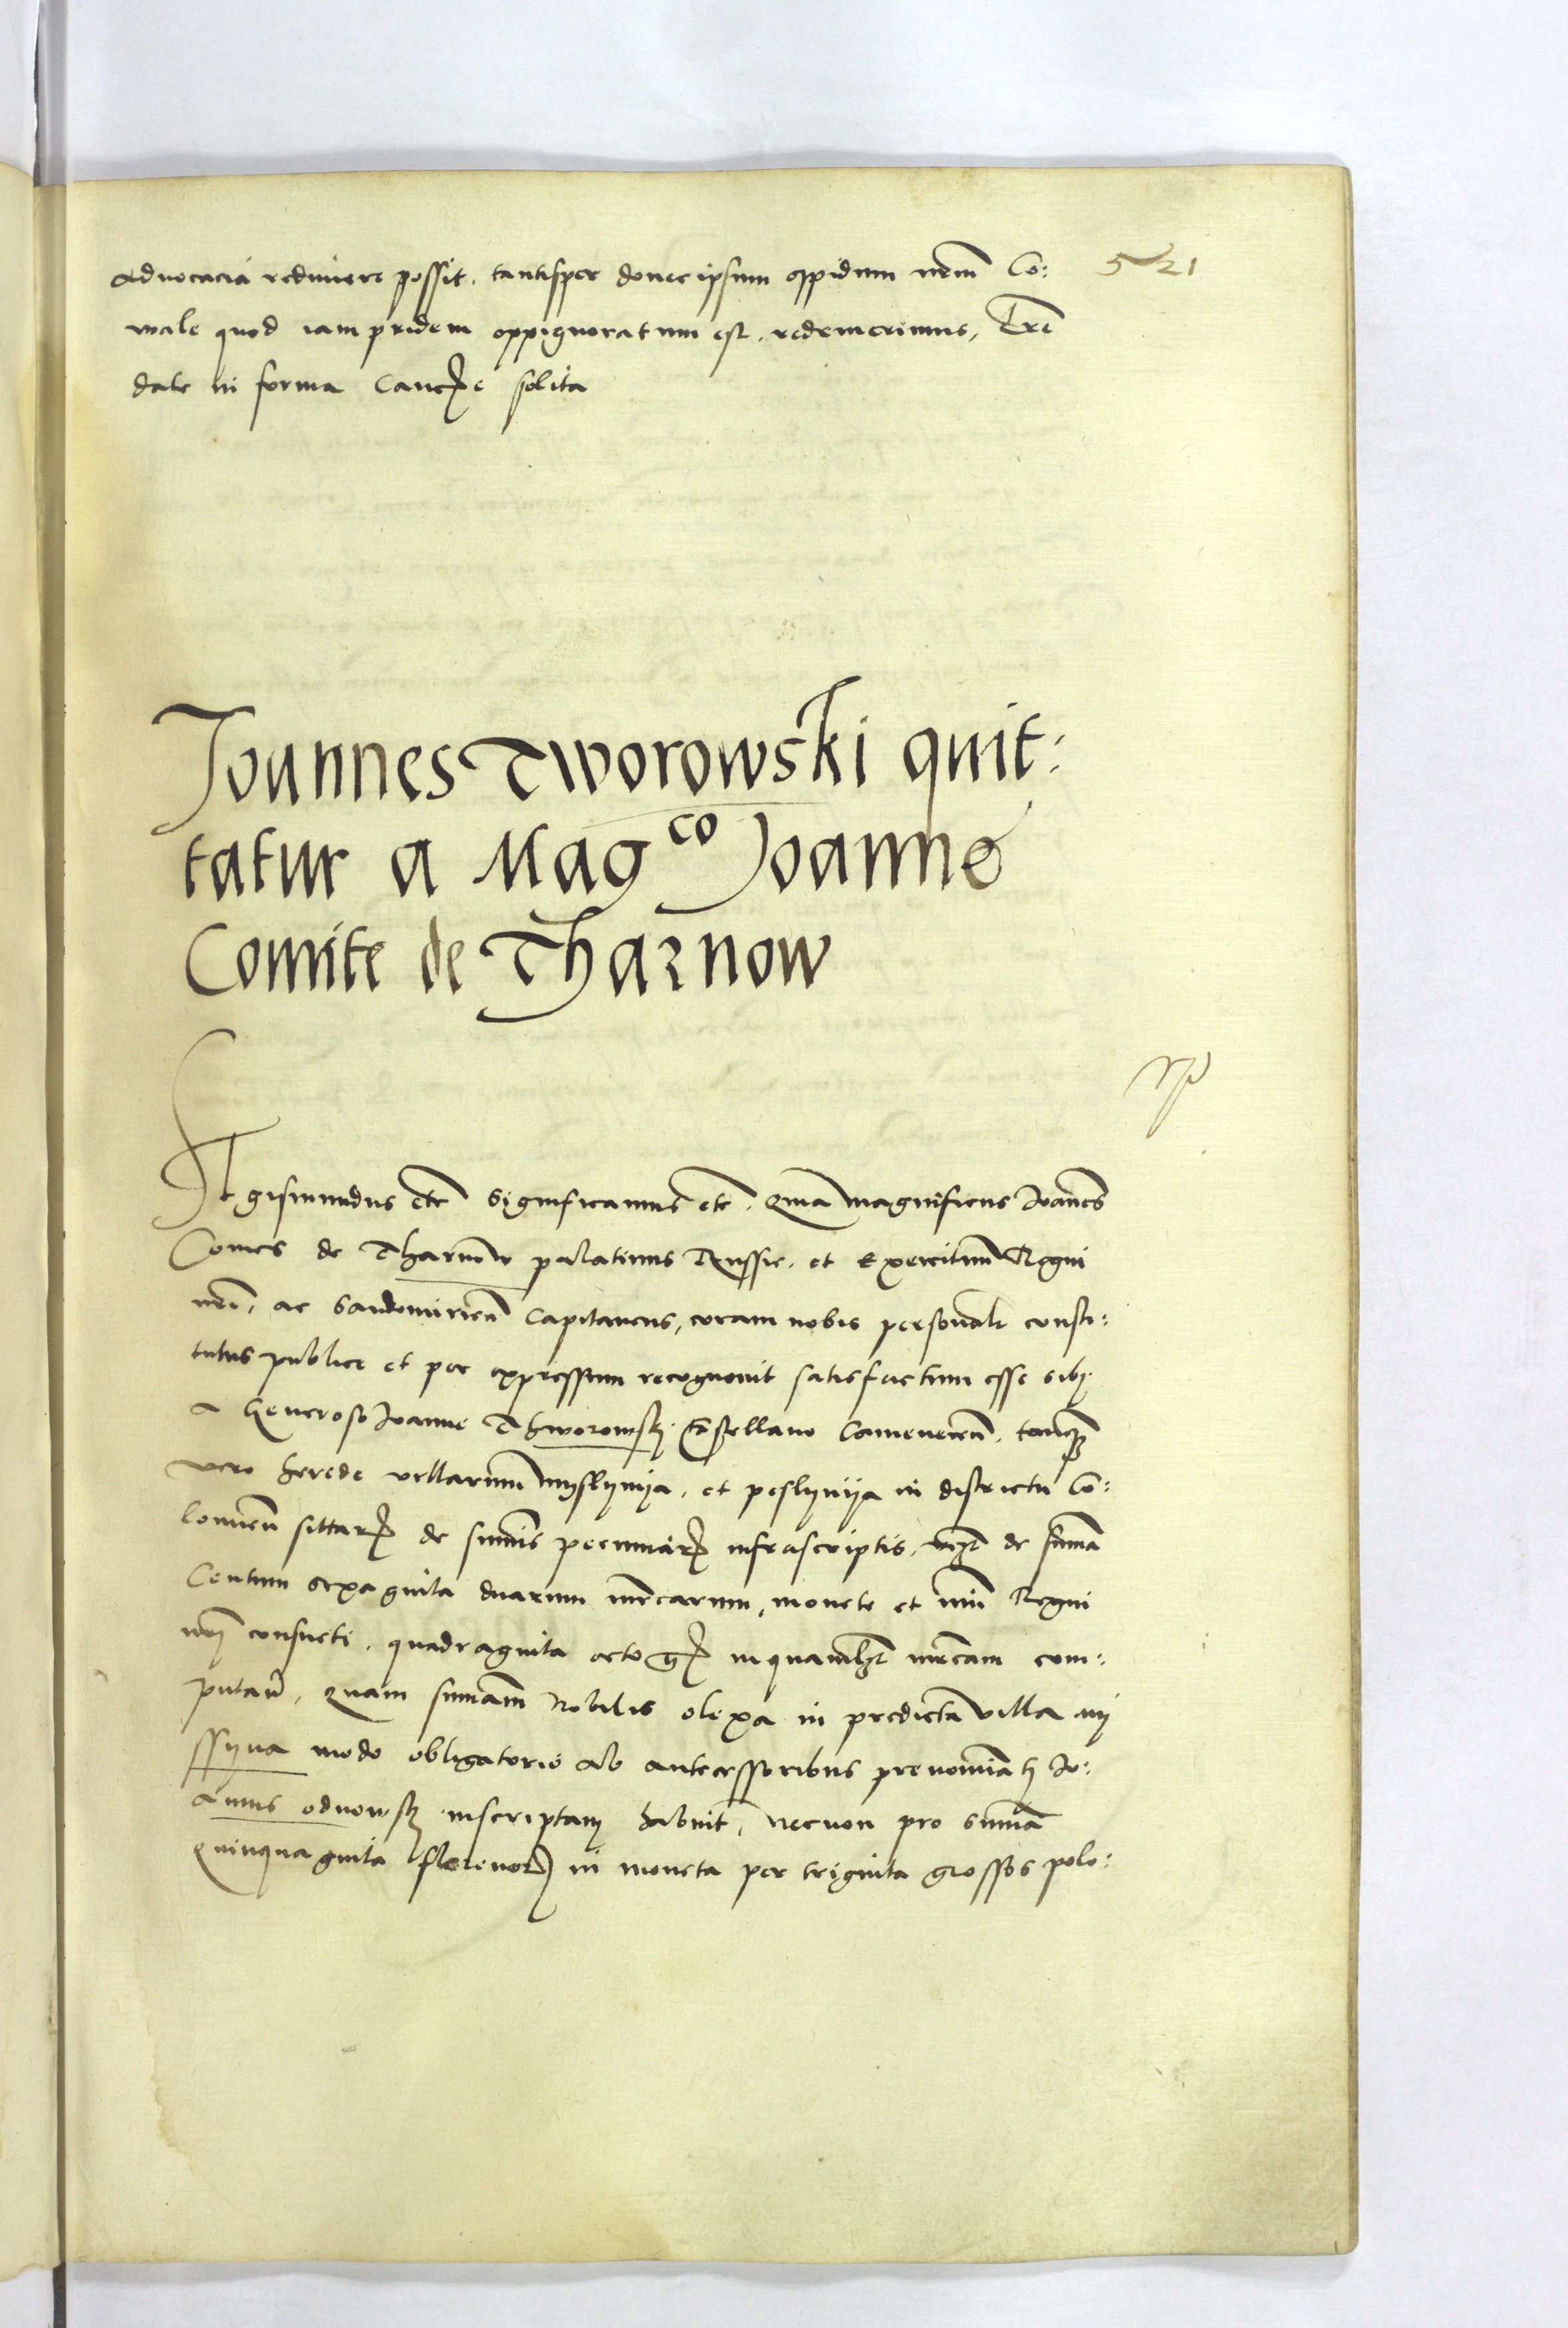 advocacia redimere possit, tantisper donec ipsum oppidum nrm̄ Co: 521
wale quod iam pridem oppignoratum est, redemerimus, Lrē
date in forma Cancꝝe solita
Joannes Tworowski quit:
tatur a Magco Joanne
Comite de Tharnow
Sigismundus etc̄ Significamus etc̄. Quia magnificus Joanes
Comes de Tharnow palatinus Russie, et Exercituum Regni
nrī, ac Sandomirien̄ Capitaneus, coram nobis personalr̄ consti:
tutus publice et per expressum recognovit satisfactum esse sibj
a Generoso Joanne Thworowskj Castellano Camenecen̄, tanqz̄
vero herede villarum Myslynija, et Peslynija in districtu Co:
lomien̄ sittarꝝ de sum̄is pecuniarꝝ infrascriptis, vzt̄ de sum̄a
Centum sexaginta duarum mrcarum, monete et nūi Regni
nrj consueti, quadraginta octo gꝝ in quamlꝫt mrcam com:
putan̄, Quam sum̄am Nobilis olexa in predicta villa mij
sslyna modo obligatorio ab antecessoribus prenominatj Jo:
annis odnowskj inscriptam habuit, necnon pro sum̄a
Quinquaginta florenoꝝ in moneta per triginta grossos polo: